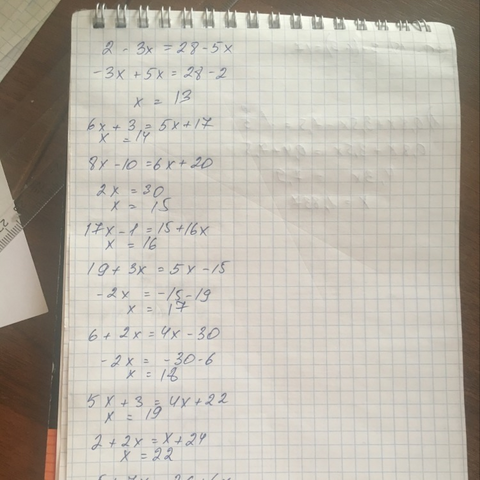 2 - 3x = 28 - 5x
-3x + 5x = 28 - 2
x = 13
6x + 3 = 5x + 17
x = 14
8x - 10 = 6x + 20
2x = 30
x = 15
17x - 1 = 15 + 16x
x = 16
19 + 3x = 5x - 15
-2x = -15 - 19
x = 17
6 + 2x = 4x - 30
-2x = -30 - 6
x = 18
5x + 3 = 4x + 22
x = 19
2 + 2x = x + 24
x = 22